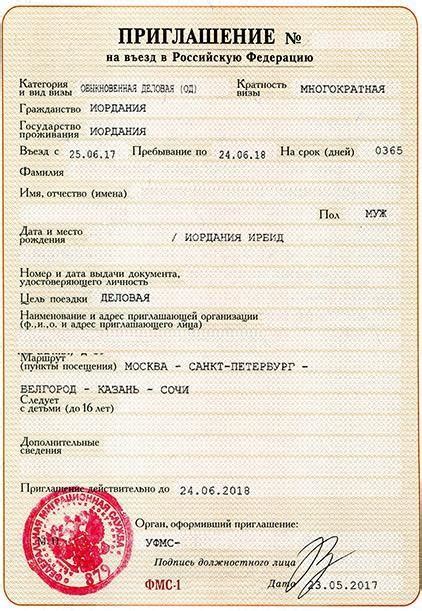 ПРИГЛАШЕНИЕ №
на въезд в Российскую Федерацию
Категория и вид визы ОБЫКНОВЕННАЯ ДЕЛОВАЯ (ОД) Кратность визы МНОГОКРАТНАЯ
Гражданство ИОРДАНИЯ
Государство проживания ИОРДАНИЯ
Въезд с 25.06.17 Пребывание по 24.06.18 На срок (дней) 0365
Фамилия
Имя, отчество (имена)
Пол МУЖ
Дата и место рождения / ИОРДАНИЯ ИРБИД
Номер и дата выдачи документа,
удостоверяющего личность
Цель поездки ДЕЛОВАЯ
Наименование и адрес приглашающей организации
(ф.,и.,о. и адрес приглашающего лица)
Маршрут
(пункты посещения) МОСКВА - САНКТ-ПЕТЕРБУРГ -
БЕЛГОРОД - КАЗАНЬ - СОЧИ
Следует
с детьми (до 16 лет)
Дополнительные
сведения
Приглашение действительно до 24.06.2018
Орган, оформивший приглашение:
М.П. УФМС-
Подпись должностного лица
ФМС-1 Дата 23.05.2017
ФЕДЕРАЛЬНАЯ МИГРАЦИОННАЯ СЛУЖБА
879